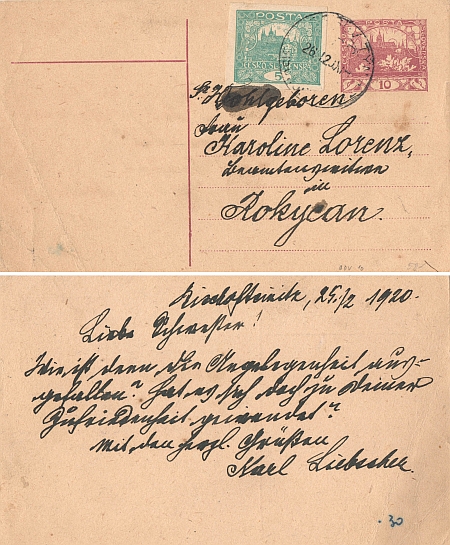 POSTA
ČESKO-SLOVENSKÁ
5
26.12.
POSTA
10
Wohlgeboren
Frau
Karoline Lorenz,
Beamtenswitwe
in
Rokycan.
25./2 1920.
Liebe Schwester!
Wie ist denn die Angelegenheit aus-
gefallen? Hat es sich doch zu Deiner
Zufriedenheit gewendet?
Mit den herzl. Grüßen
Karl Liebscher.
. 30